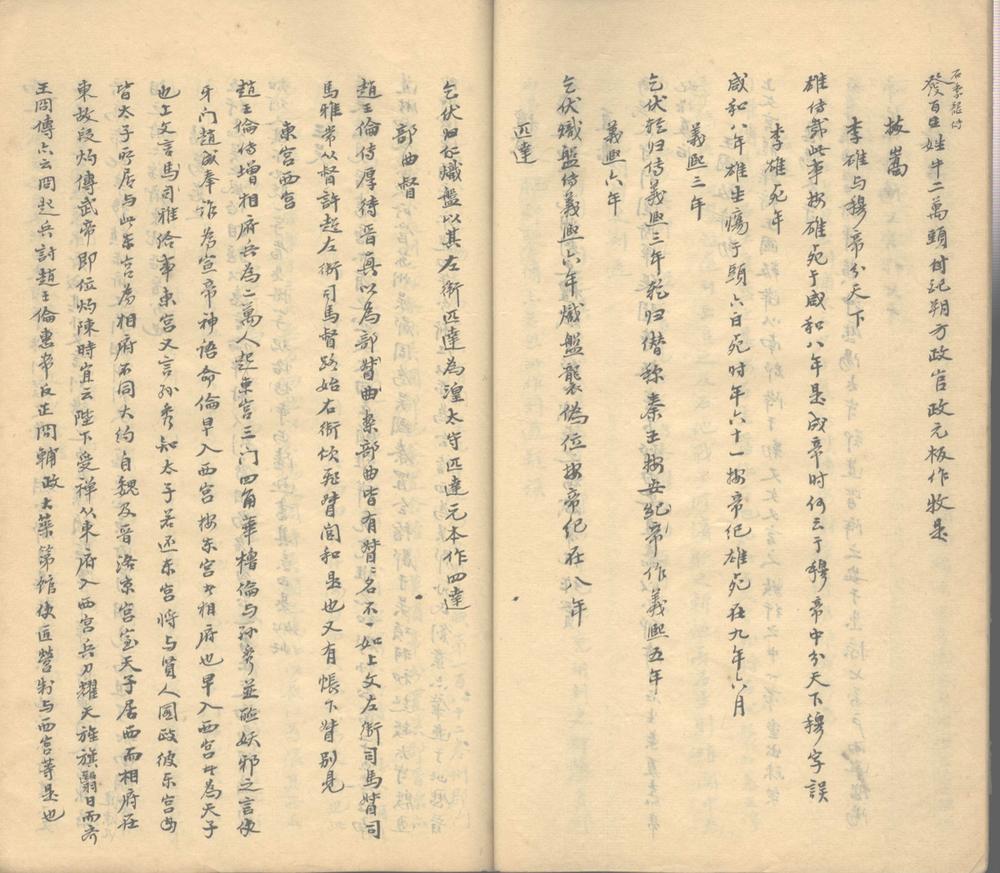 石季龍傳
發百姓牛二萬頭付記朔方政官政元板作牧是
拔嵩
李雄与穆帝分天下
雄傳䟽此事按雄死于咸和八年是成帝时何云于穆帝中分天下穆字誤
李雄死年
咸和八年雄生瘍于頭六日死时年六十一按帝纪雄死在九年六月
義熙三年
乞伏乾归传義熙三年乾归僣称秦王按安纪帝作義熙五年
義熙六年
乞伏熾盤传義熙六年熾盤襲偽位按帝纪在八年
匹達
乞伏归传熾盤以其左衛匹達為湟太守匹達元本作四達
部曲督
趙王倫传厚待晋真以為部曲督按部曲皆有督名不一如上文左衛司馬督司
馬雅常从督許超左衛司馬督路始右衛佽飛督閭和是也又有帳下督别見
東宫西宫
趙王倫传增相府兵為二萬人起東宫三门四角華櫓倫与孙秀並惑妖邪之言使
牙门趙奉诈為宣帝神語命倫早入西宫按东宫者相府也早入西宫者為天子
也上文言馬司雅给事東宫又言孙秀知太子若还东宫将与賢人图政彼东宫
皆太子所居与此东宫為相府不同大约自魏及晋洛京宫室天子居西而相府在
東故段灼傳武帝即位灼陳時宜云陛下受禅从東府入西宫兵刀耀天旌旗翳日而齐
王冏傳亦云冏起兵討趙王倫惠帝反正冏輔政大築第館使匠營制与西宫等是也